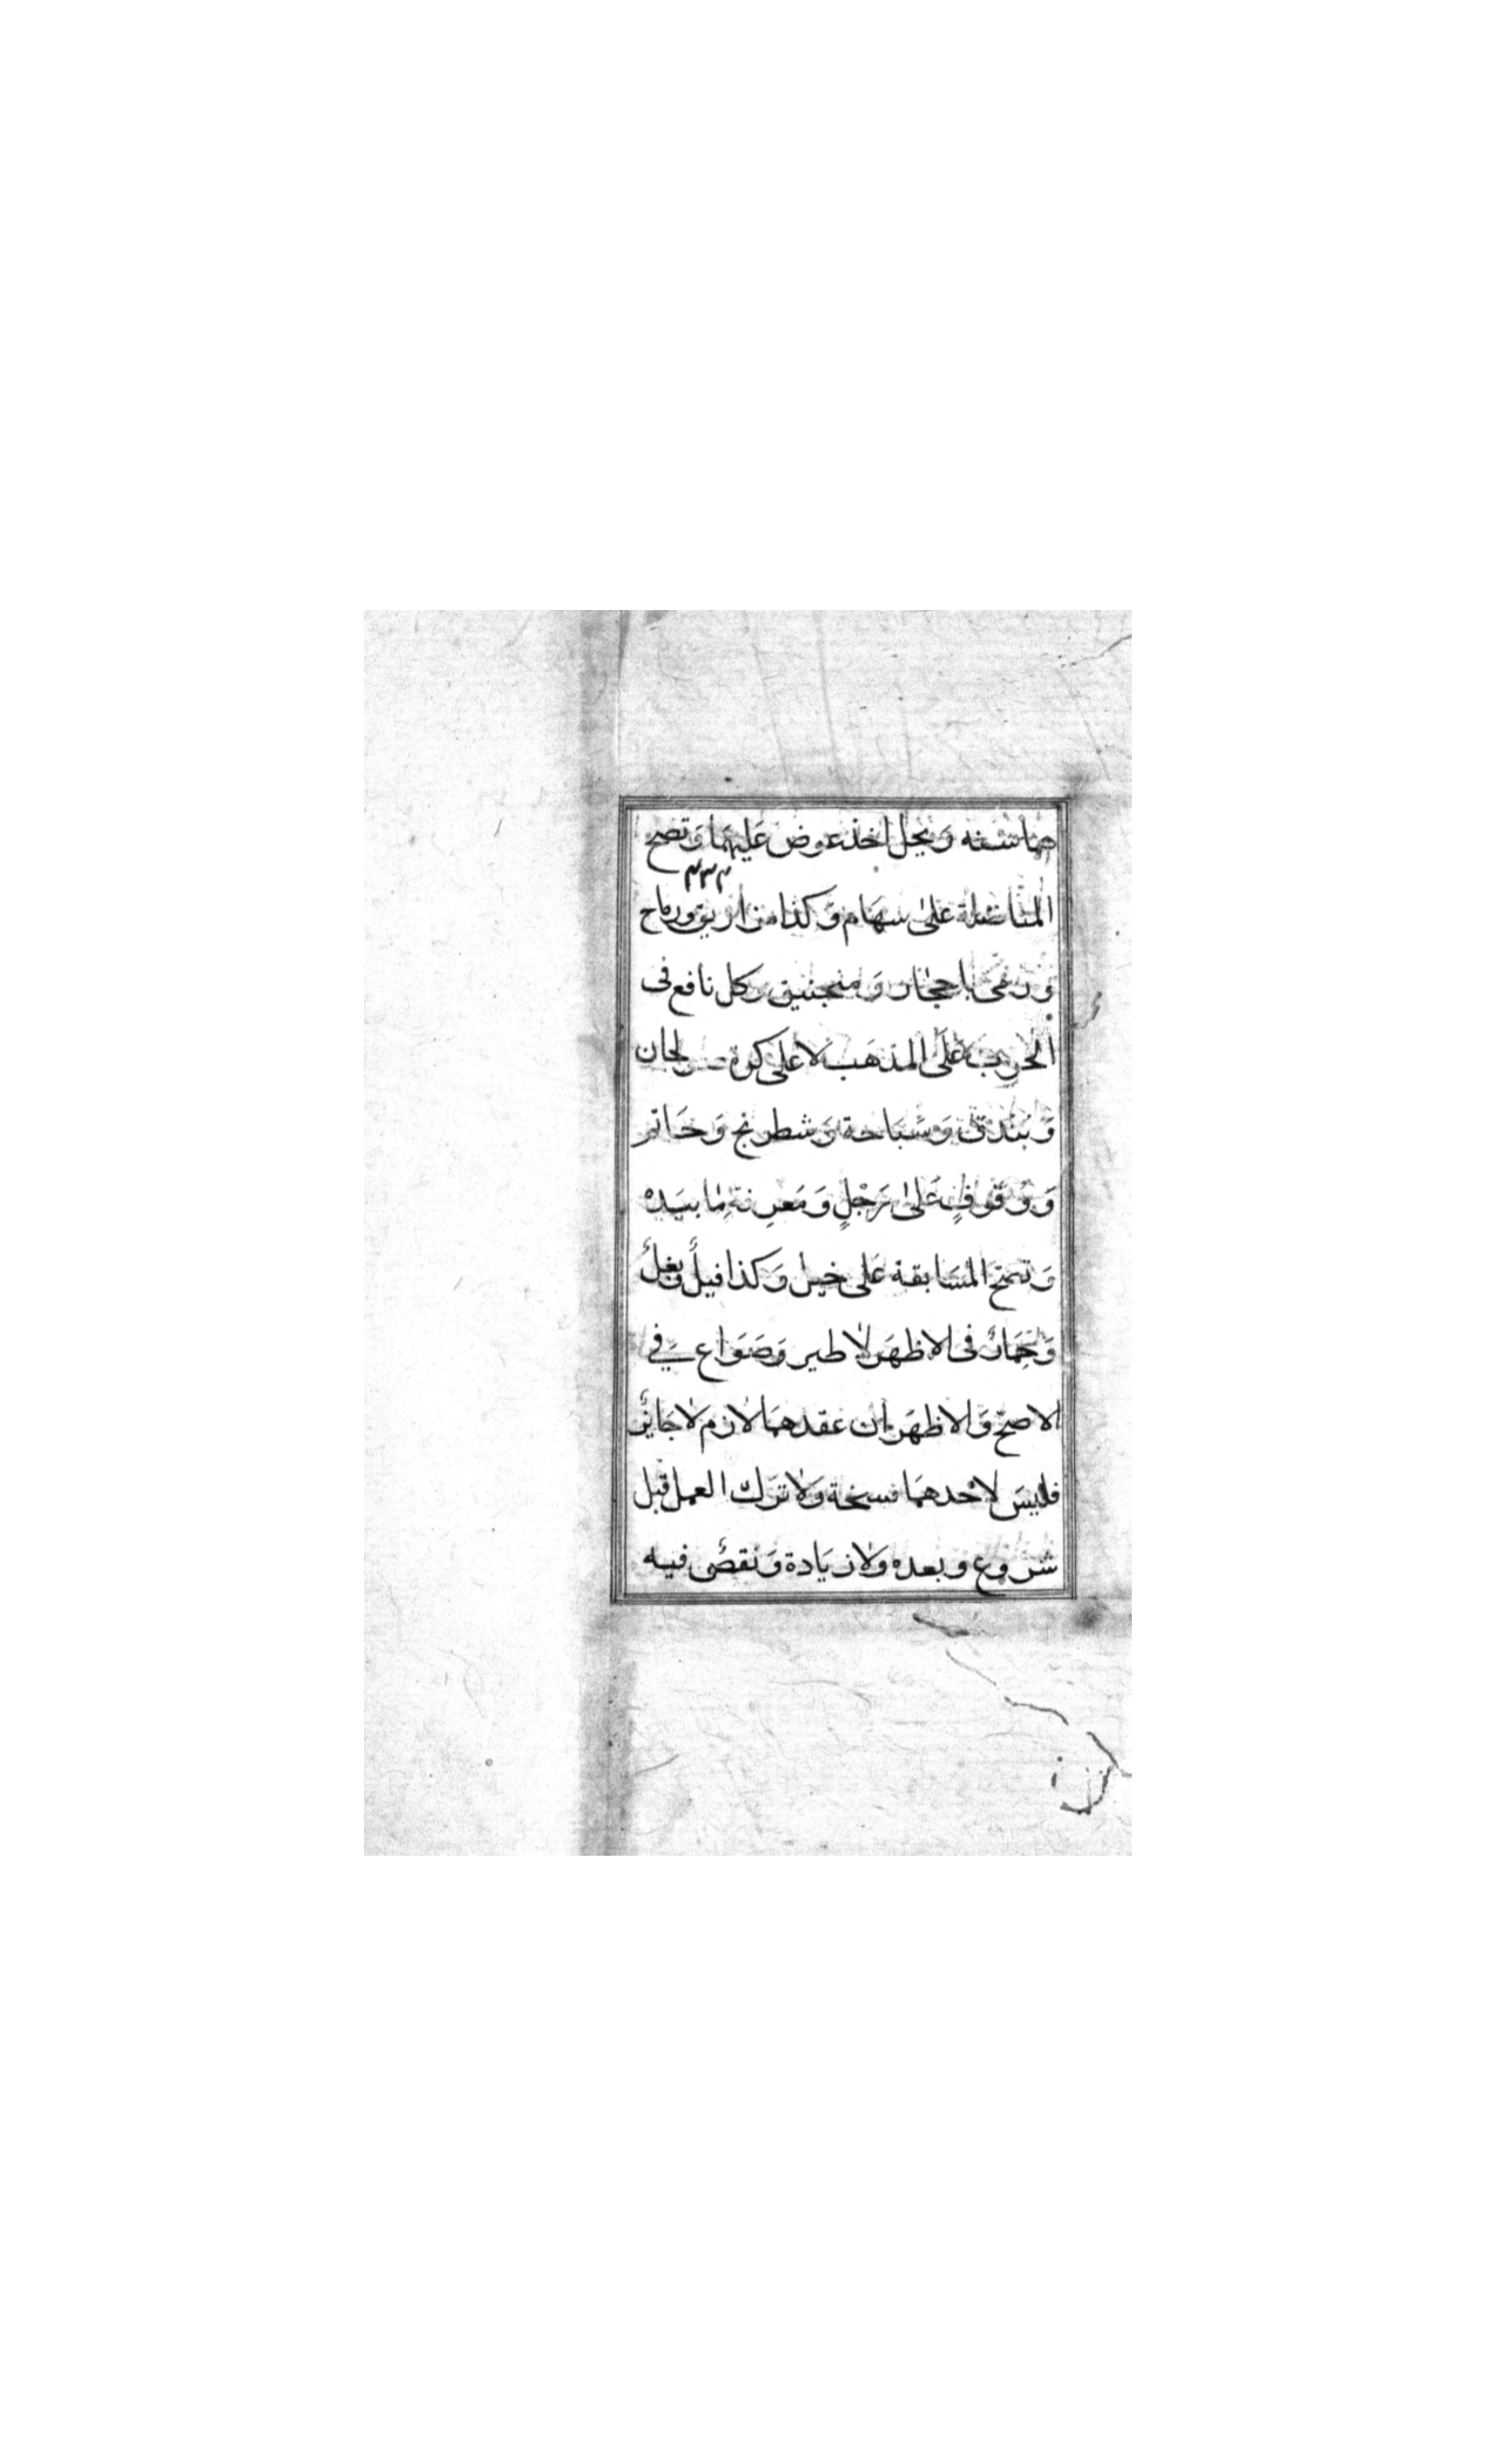 هما سنة وَيحل اخذ عوض عَليهمَا وَتصح
المناضلة علىٰ سهَام وَكذا مزاريق ورماح
وَرمى باحجار وَمنجنيق وكل نافع فى
الحرب عَلَى المذهَب لا على كرة صولجان
وَبندق وَسبَاحة وَشطرنج وَخَاتم
وَوقوفٍ عَلىٰ رَجْلٍ وَمَعرِفة مٰا بيَده
وَتصح المسَابقة عَلى خيل وَكذا فيلٌ وبغلٌ
وَحِمَارٌ فى الاظهَر لا طير وَصَرَاع في
الاصحّ وَالاظهَر ان عقدهمَا لازم لا جَائزٌ
فليسَ لاحدهمَا فسخة وَلا ترَك العمل قبل
شروع وبعده وَلا زيَادة وَنقصٌ فيه